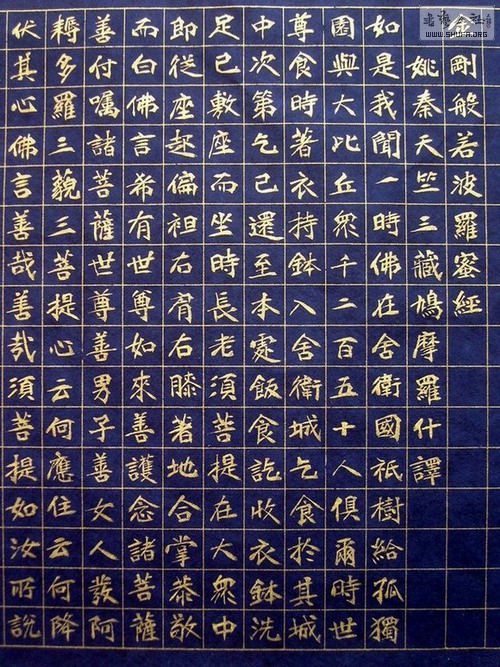 金剛般若波羅蜜經
姚秦天竺三藏鳩摩羅什譯
如是我聞一時佛在舍衛國祇樹給孤獨
園與大比丘眾千二百五十人俱爾時世
尊食時著衣持鉢入舍衛城乞食於其城
中次第乞已還至本處飯食訖收衣鉢洗
足已敷座而坐時長老須菩提在大眾中
即從座起偏袒右肩右膝著地合掌恭敬
而白佛言希有世尊如來善護念諸菩薩
善付囑諸菩薩世尊善男子善女人發阿
耨多羅三藐三菩提心云何應住云何降
伏其心佛言善哉善哉須菩提如汝所說
WWW.SHUFA.ORG